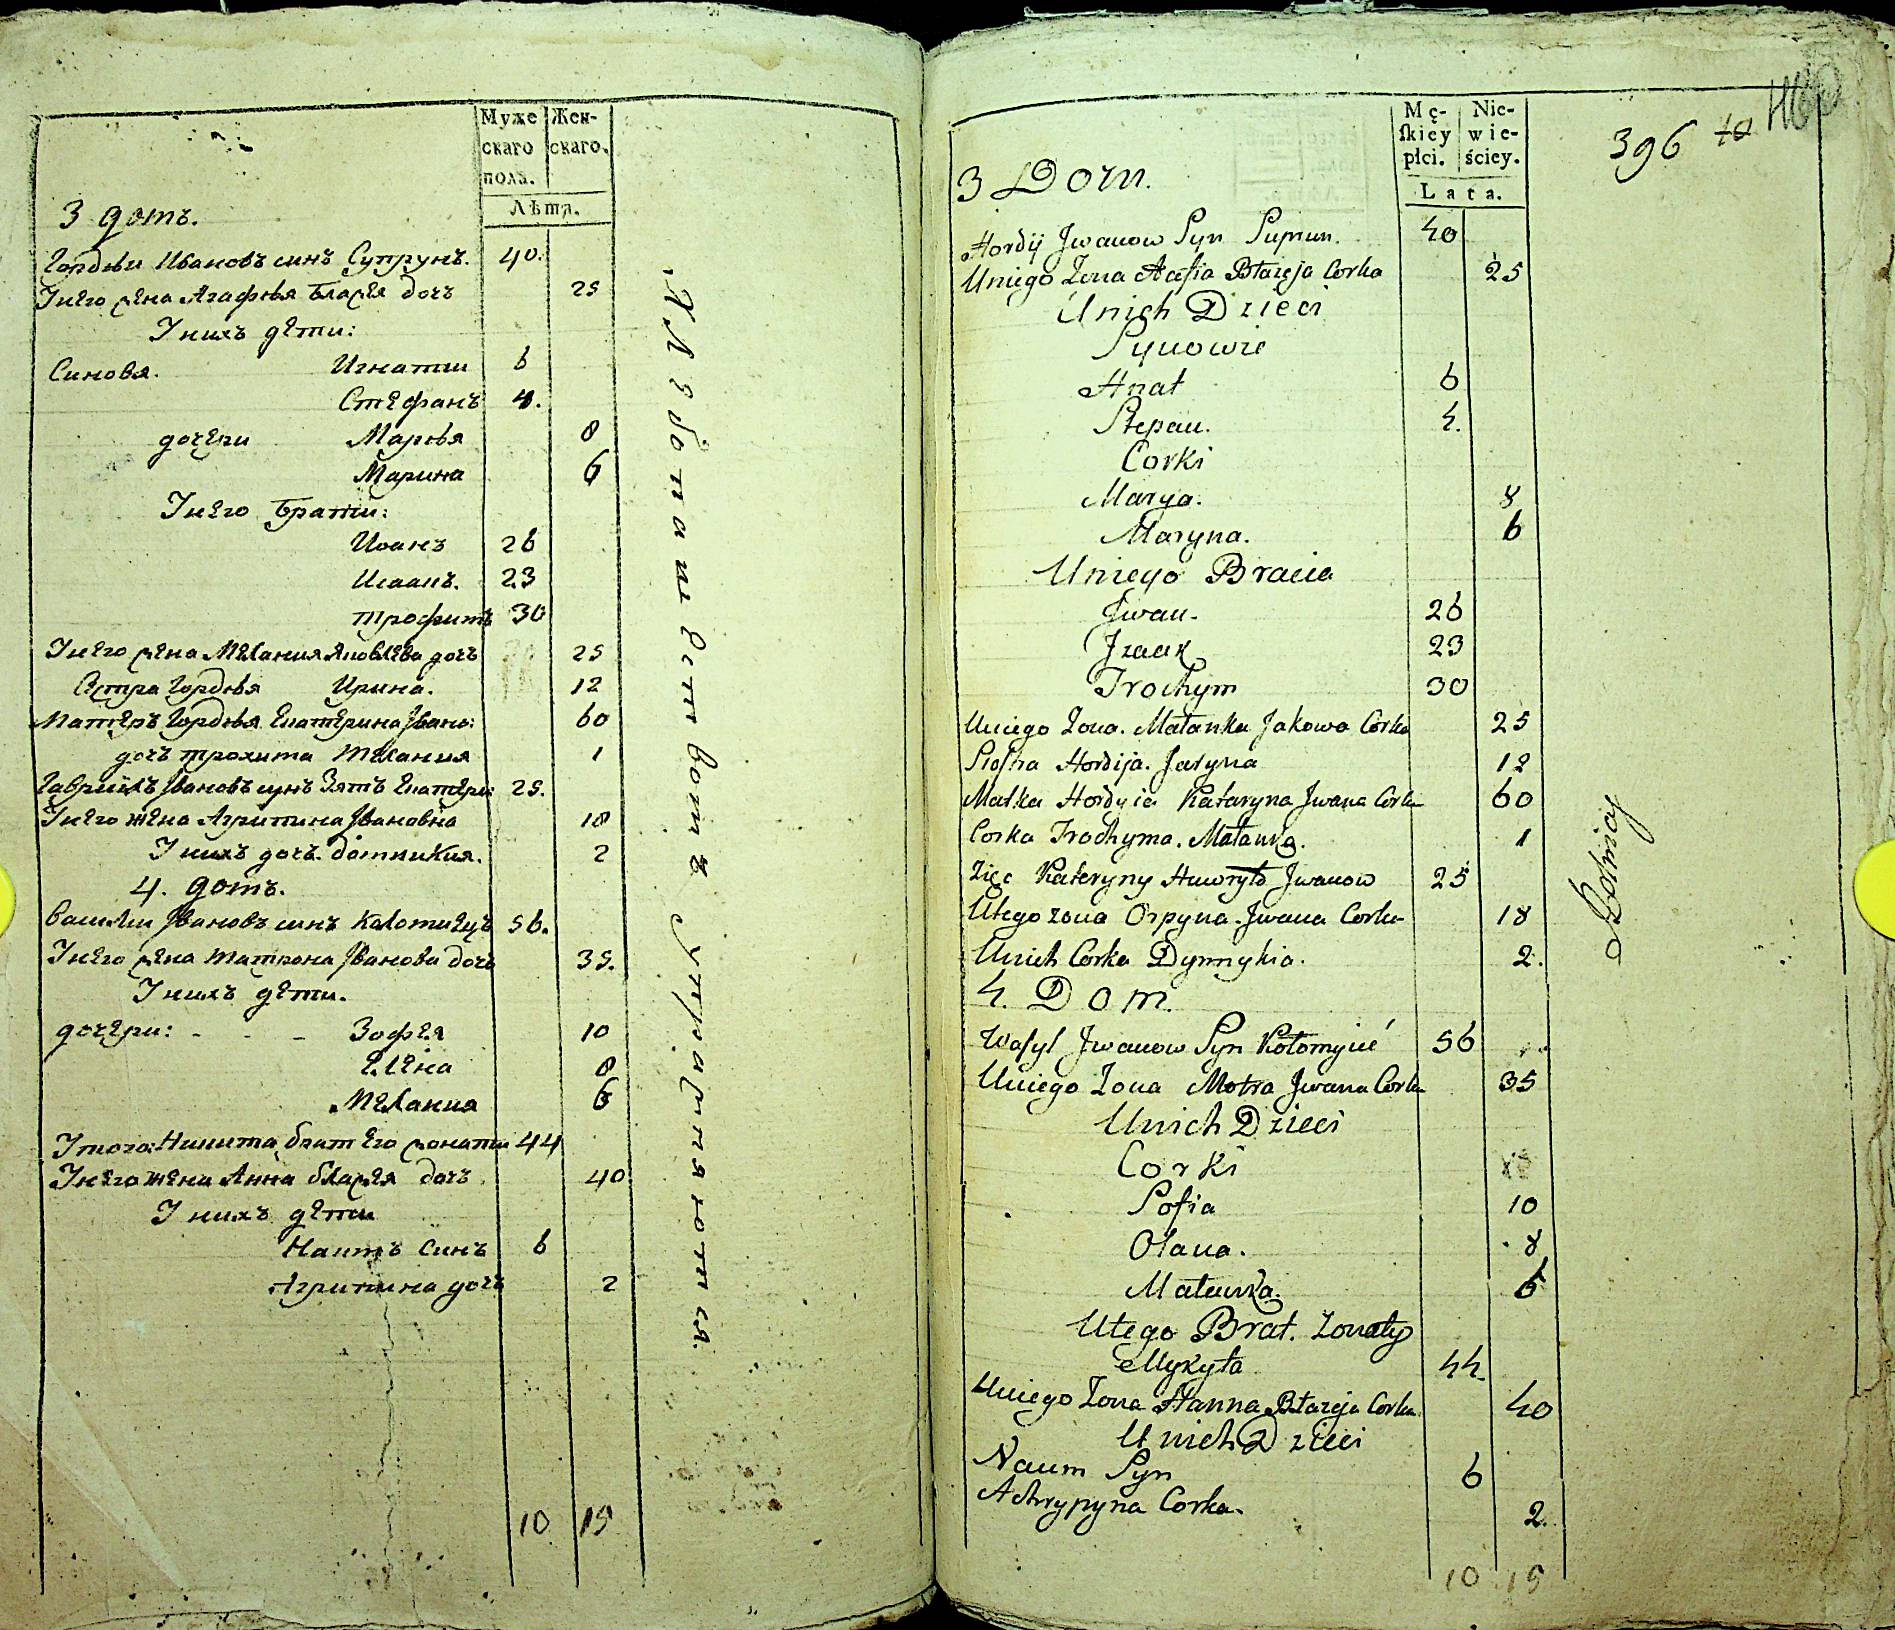 Муже
скаго
полъ.
Жен-
скаго.
Лѣта.
3 домъ.
Гордѣи Ивановъ синъ Супрунъ. 40.
Унего жена Агафѣя Блажея дочъ 25
Унихъ дѣти:
Синовя. Игнатии 6
Стефанъ 4.
дочери Марѣя 8
Марина 6
Унего братѣи:
Иванъ 26
Исаакъ. 23
Трофимъ 30
Унего жена Мелания Яковлева дочъ 25
Сестра Гордѣя Ирина. 12
Матеръ Гордѣя Екатерина Ивано: 60
дочъ трохима Мелания 1
Гавриилъ Ивановъ сынъ Зять Екатери: 25.
Унего жена Агрипина Ивановна 18
Унихъ дочъ домникия. 2
4. домъ.
Василии Ивановъ синъ Коломиецъ 56.
Унего жена матрона Иванова дочъ 35.
Унихъ дети.
дочери: - - - Зофея 10
Елена 8
Мелания 6
Утого: Никита брат его жонатии 44
Унего жена Анна блажея дочъ 40
Унихъ дети
Наумъ синъ 6
Агрипина дочъ 2
10 15
Хлебопашествомъ упражняются.
396 10
Mę-
ſkiey
płci.
Nie-
wie-
ściey.
Lata.
3 Dom.
Hordij Jwanow Syn Suprun. 40
Uniego Zona Aafia Błazeja Corka 25
Unich Dzieci
Synowie
Hnat 6
Stepan. 4.
Corki
Marya. 8
Maryna. 6
Uniego Bracia
Jwan. 26
Jzaak 23
Trochym 30
Uniego Zona. Małanka Jakowa Corka 25
Siostra Hordija. Jaryna 12
Matka Hordyia Kataryna Jwana Corka 60
Corka Trochyma. Małanka. 1
Zięc Kateryny Hawryło Jwanow 25
Utego zona Orpyna. Jwana Corka 18
Unich Corka Dymnykia. 2.
4. Dom.
Wasyl Jwanow Syn Kołomyieć 56
Uniego Zona Motra Jwana Corka 35
Unich Dzieci
Corki
Sofia 10
Ołana. 8
Małanka. 6
Utego Brat. Zonaty
Mykyta 44.
Uniego Zona Hanna Błazeja Corka 40
Unich Dzieci
Naum Syn 6
Achrypyna Corka. 2.
10 15
Rolnicy